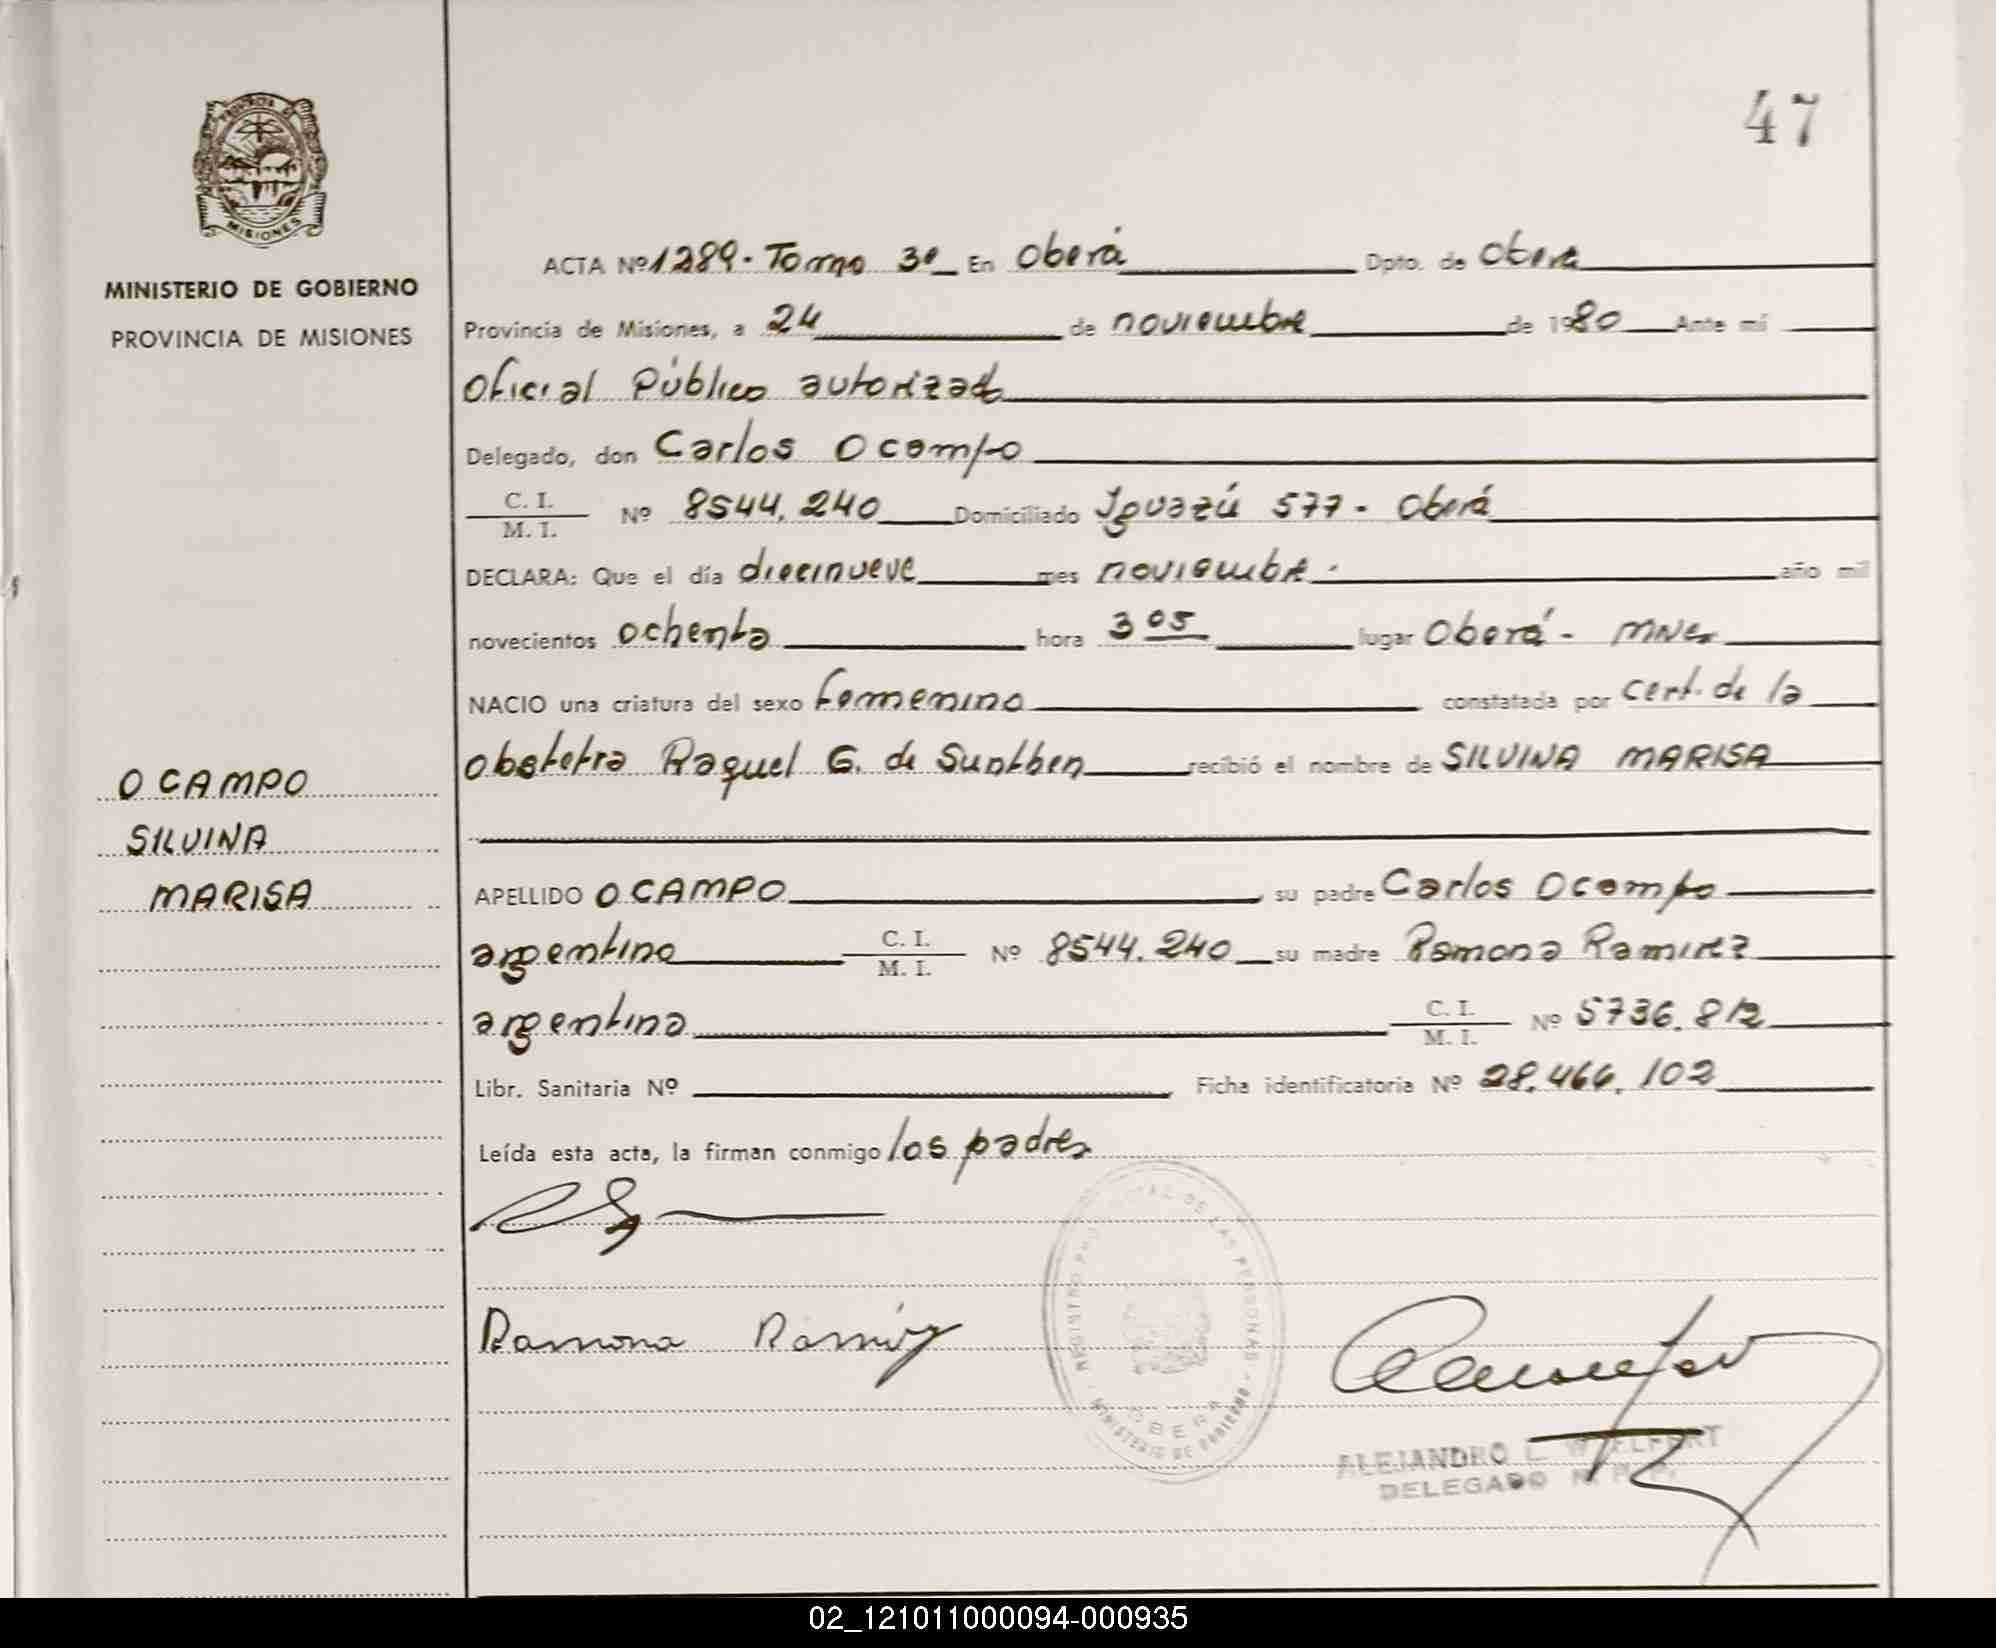 47
PROVINCIA DE
MISIONES
MINISTERIO DE GOBIERNO
PROVINCIA DE MISIONES
OCAMPO
SILVINA
MARISA
ACTA Nº 1289 - Tomo 3º En Oberá Dpto. de Oberá
Provincia de Misiones, a 24 de noviembre de 1980 Ante mí
Oficial Público autorizado
Delegado, don Carlos Ocampo
C. I. / M. I. Nº 8544.240 Domiciliado Iguazú 577 - Oberá
DECLARA: Que el día diecinueve mes noviembre - año mil
novecientos ochenta hora 3 05 lugar Oberá - Mnes
NACIO una criatura del sexo femenino constatada por cert. de la
obstetra Raquel G. de recibió el nombre de SILVINA MARISA
APELLIDO OCAMPO su padre Carlos Ocampo
argentino C. I. / M. I. Nº 8544.240 su madre Ramona Ramirez
argentina C. I. / M. I. Nº 5736.812
Libr. Sanitaria Nº Ficha identificatoria Nº 28.466.102
Leída esta acta, la firman conmigo los padres
Ramona Ramirez
REGISTRO PROVINCIAL DE LAS PERSONAS
OBERA
MINISTERIO DE GOBIERNO
ALEJANDRO L.
DELEGADO
02_121011000094-000935